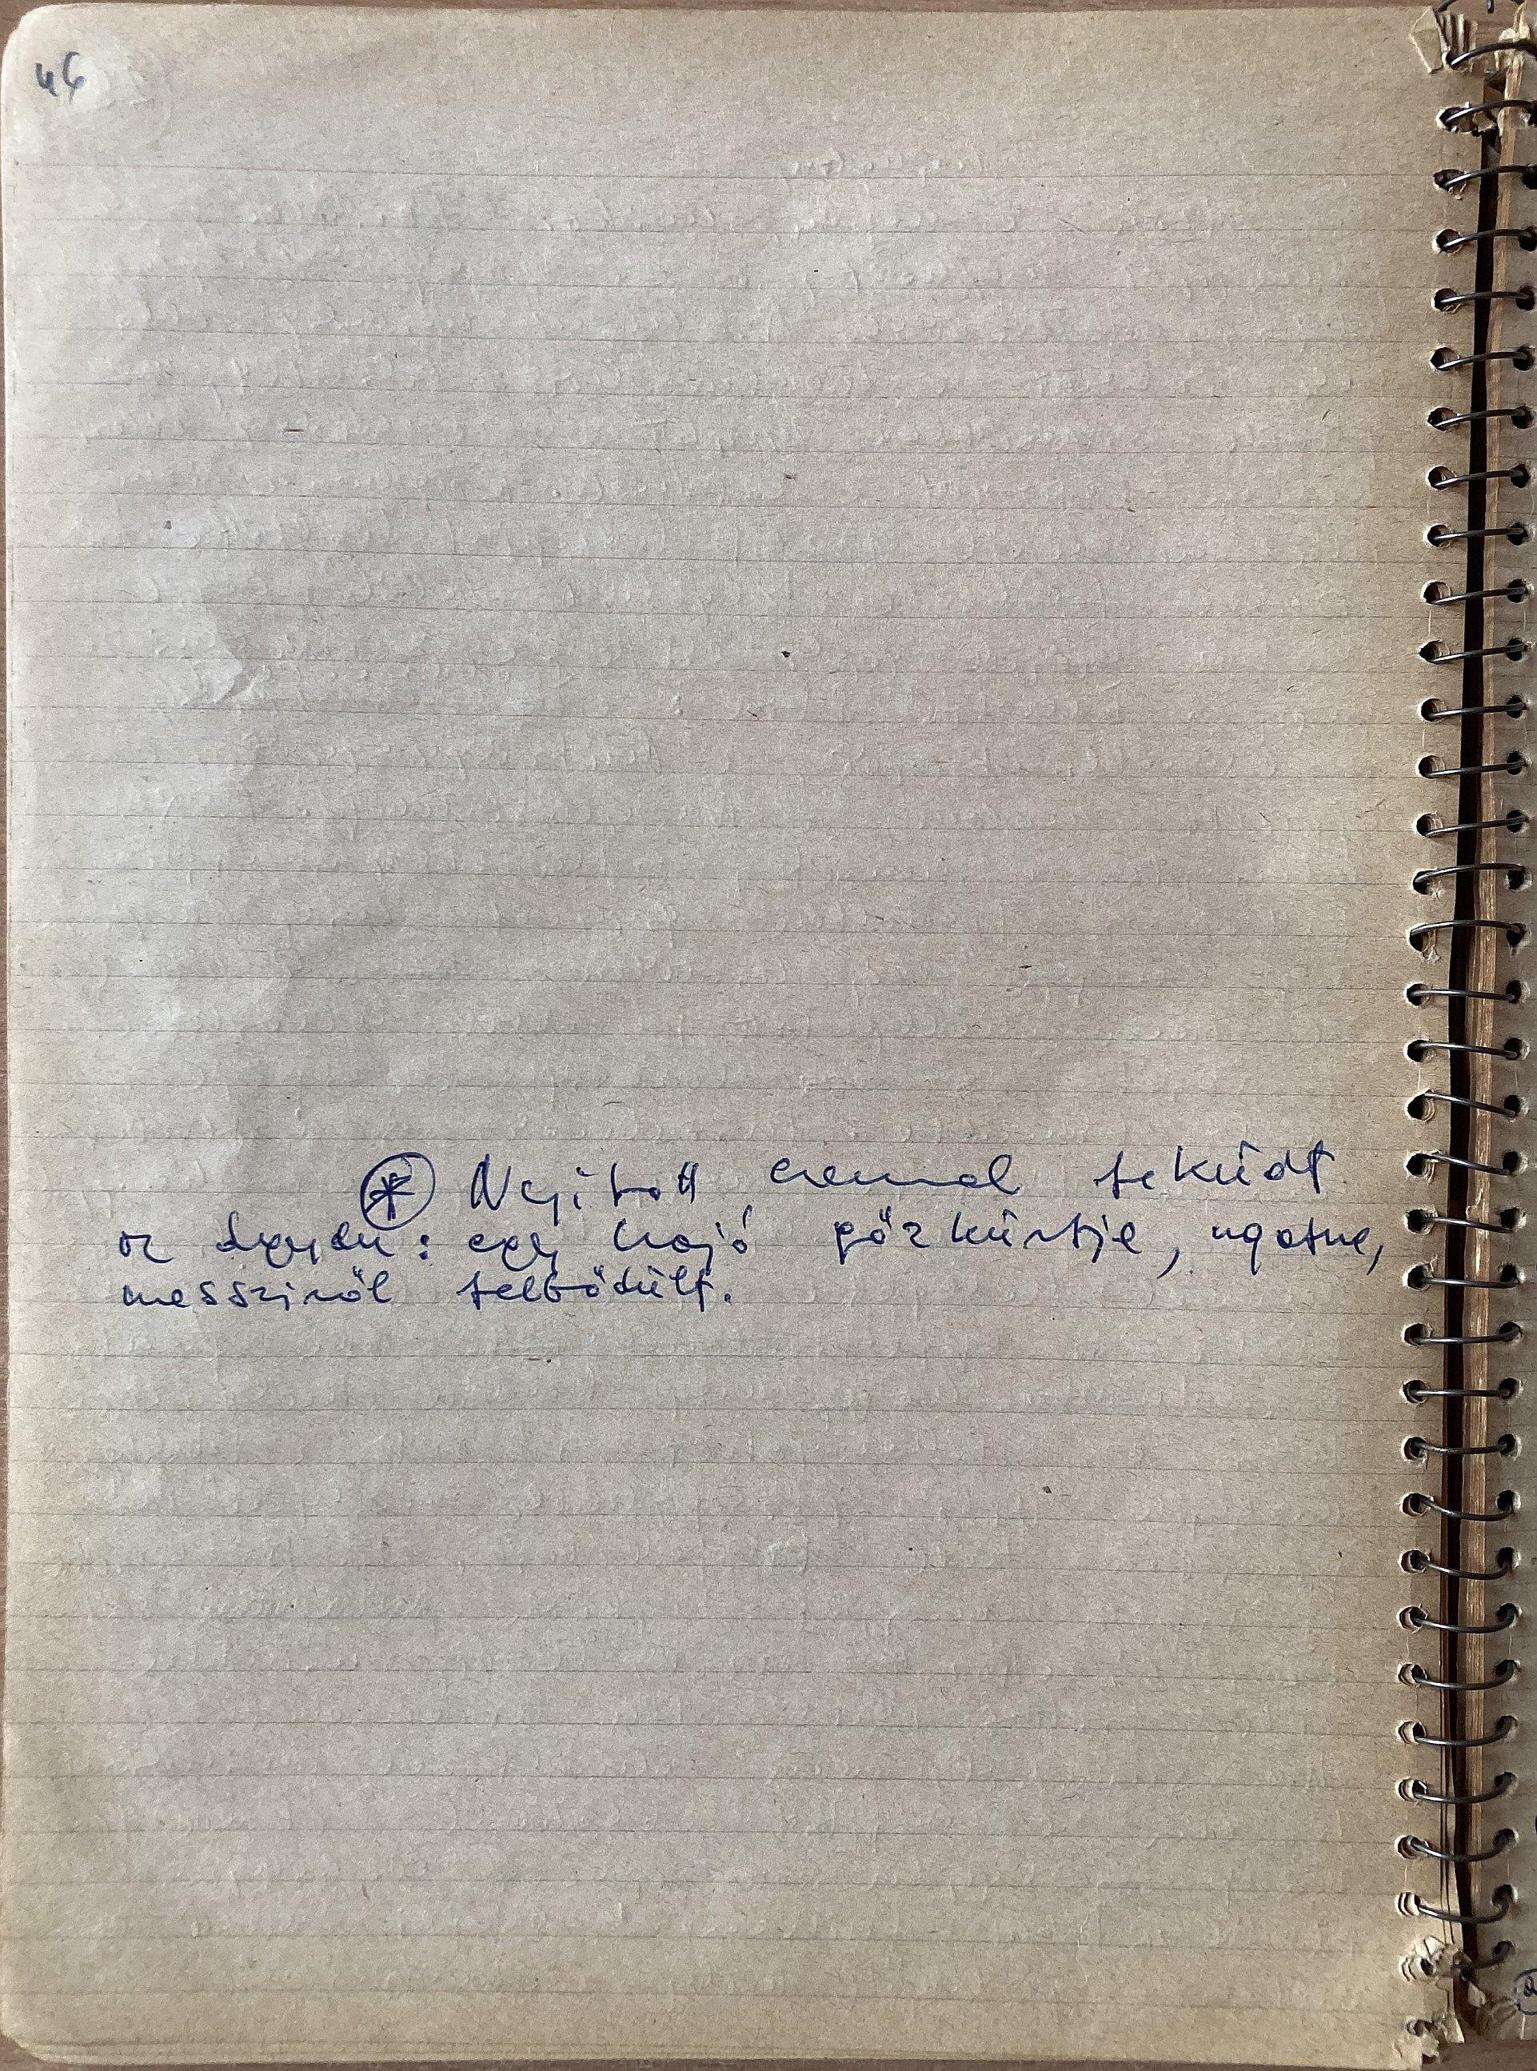 46
⊛ Nyitott szemmel feküdt
az ágyon: egy hajó gőzkürtje, ugatva,
messziről felbődült.